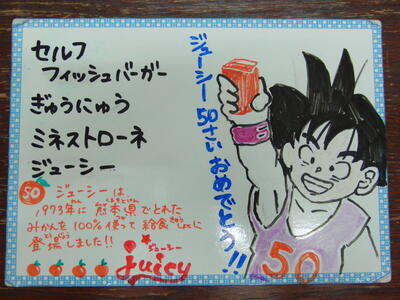 セルフ
フィッシュバーガー
ぎゅうにゅう
ミネストローネ
ジューシー
ジューシー50さいおめでとう!!
50 ジューシーは、
1973年に熊本県でとれた
みかんを100%使って給食に
登場しました!!
ジューシー
juicy
50